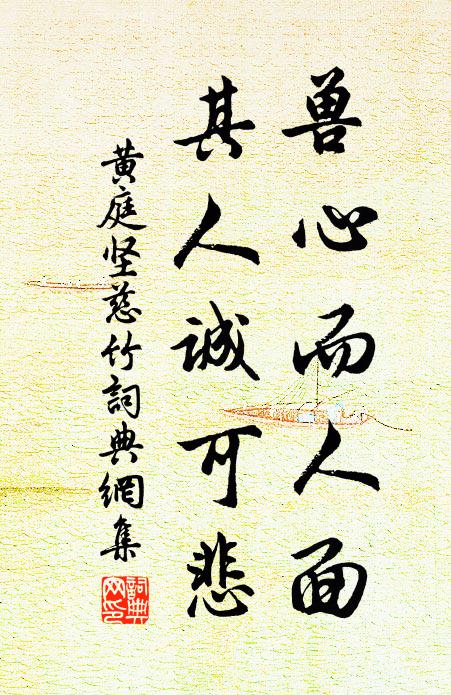 兽心而人面
其人诚可悲
黄庭坚慈竹詞典網集